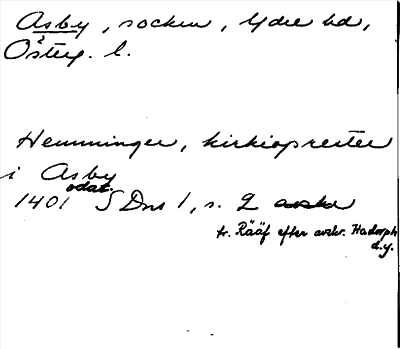 Asby, socken, Ydre hd,
Österg. l.
Hemminger, kirkioprester
i Asby
odat.
1401 SDns 1, s. 2
tr. Rääf efter avskr. Hadorph
d.y.